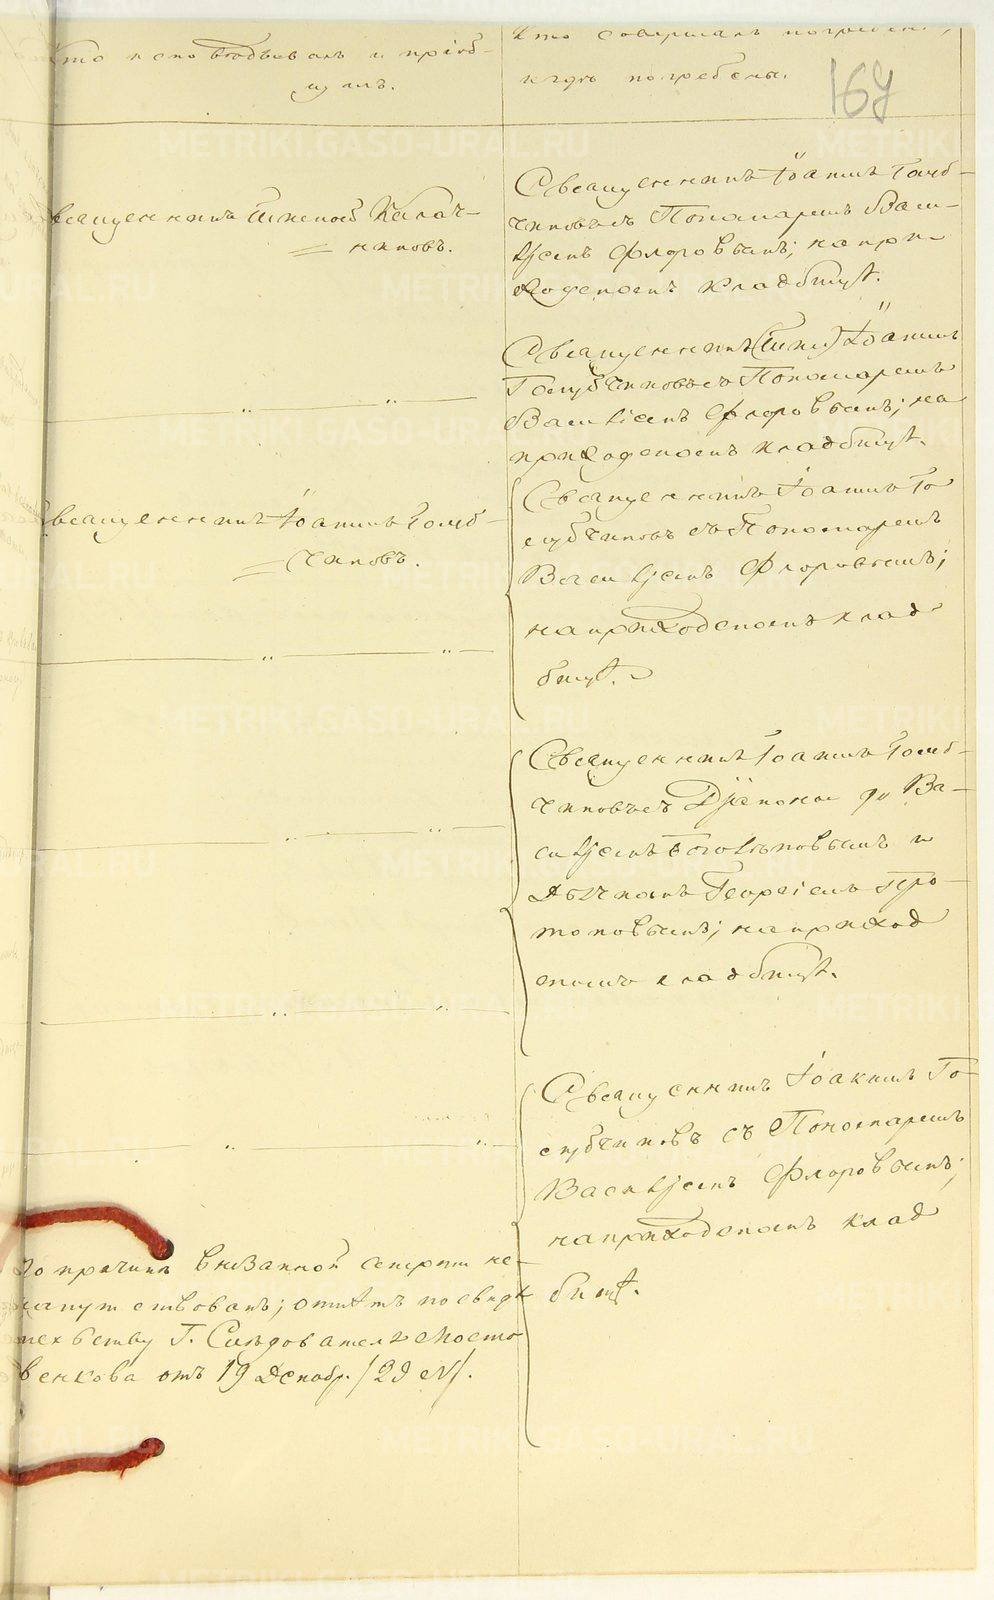 Кто исповѣдывалъ и пріоб-
щалъ.
Кто совершалъ погребеніе,
и гдѣ погребены.
167
Священникъ Калач-
никовъ.
Священникъ Іоаннъ Голуб-
чиковъ съ Пономаремъ Васи-
ліемъ Флоровымъ; на при-
ходскомъ кладбищѣ.
Священникъ Іоаннъ
Голубчиковъ съ Пономаремъ
Василіемъ Флоровымъ; на
приходскомъ кладбищѣ.
Священникъ Іоаннъ Голуб-
чиковъ.
Священникъ Іоаннъ Го
лубчиковъ съ Пономаремъ
Василіемъ Флоровымъ;
на приходскомъ клад
бищѣ.
Священникъ Іоаннъ Голуб-
чиковъ съ Діакономъ Ва-
силіемъ Боголѣповымъ и
Дьячкомъ Георгіемъ Про-
топовымъ; на приход
скомъ кладбищѣ.
Священникъ Іоаннъ Го-
лубчиковъ съ Пономаремъ
Василіемъ Флоровымъ;
на приходскомъ клад
бищѣ.
По причинѣ внезапной смерти не-
напутствованъ; отпѣтъ по свидѣ
тельству Г. Слѣдователя Место
венкова отъ 19 Декабр. /29 №/.
METRIKI.GASO-URAL.RU